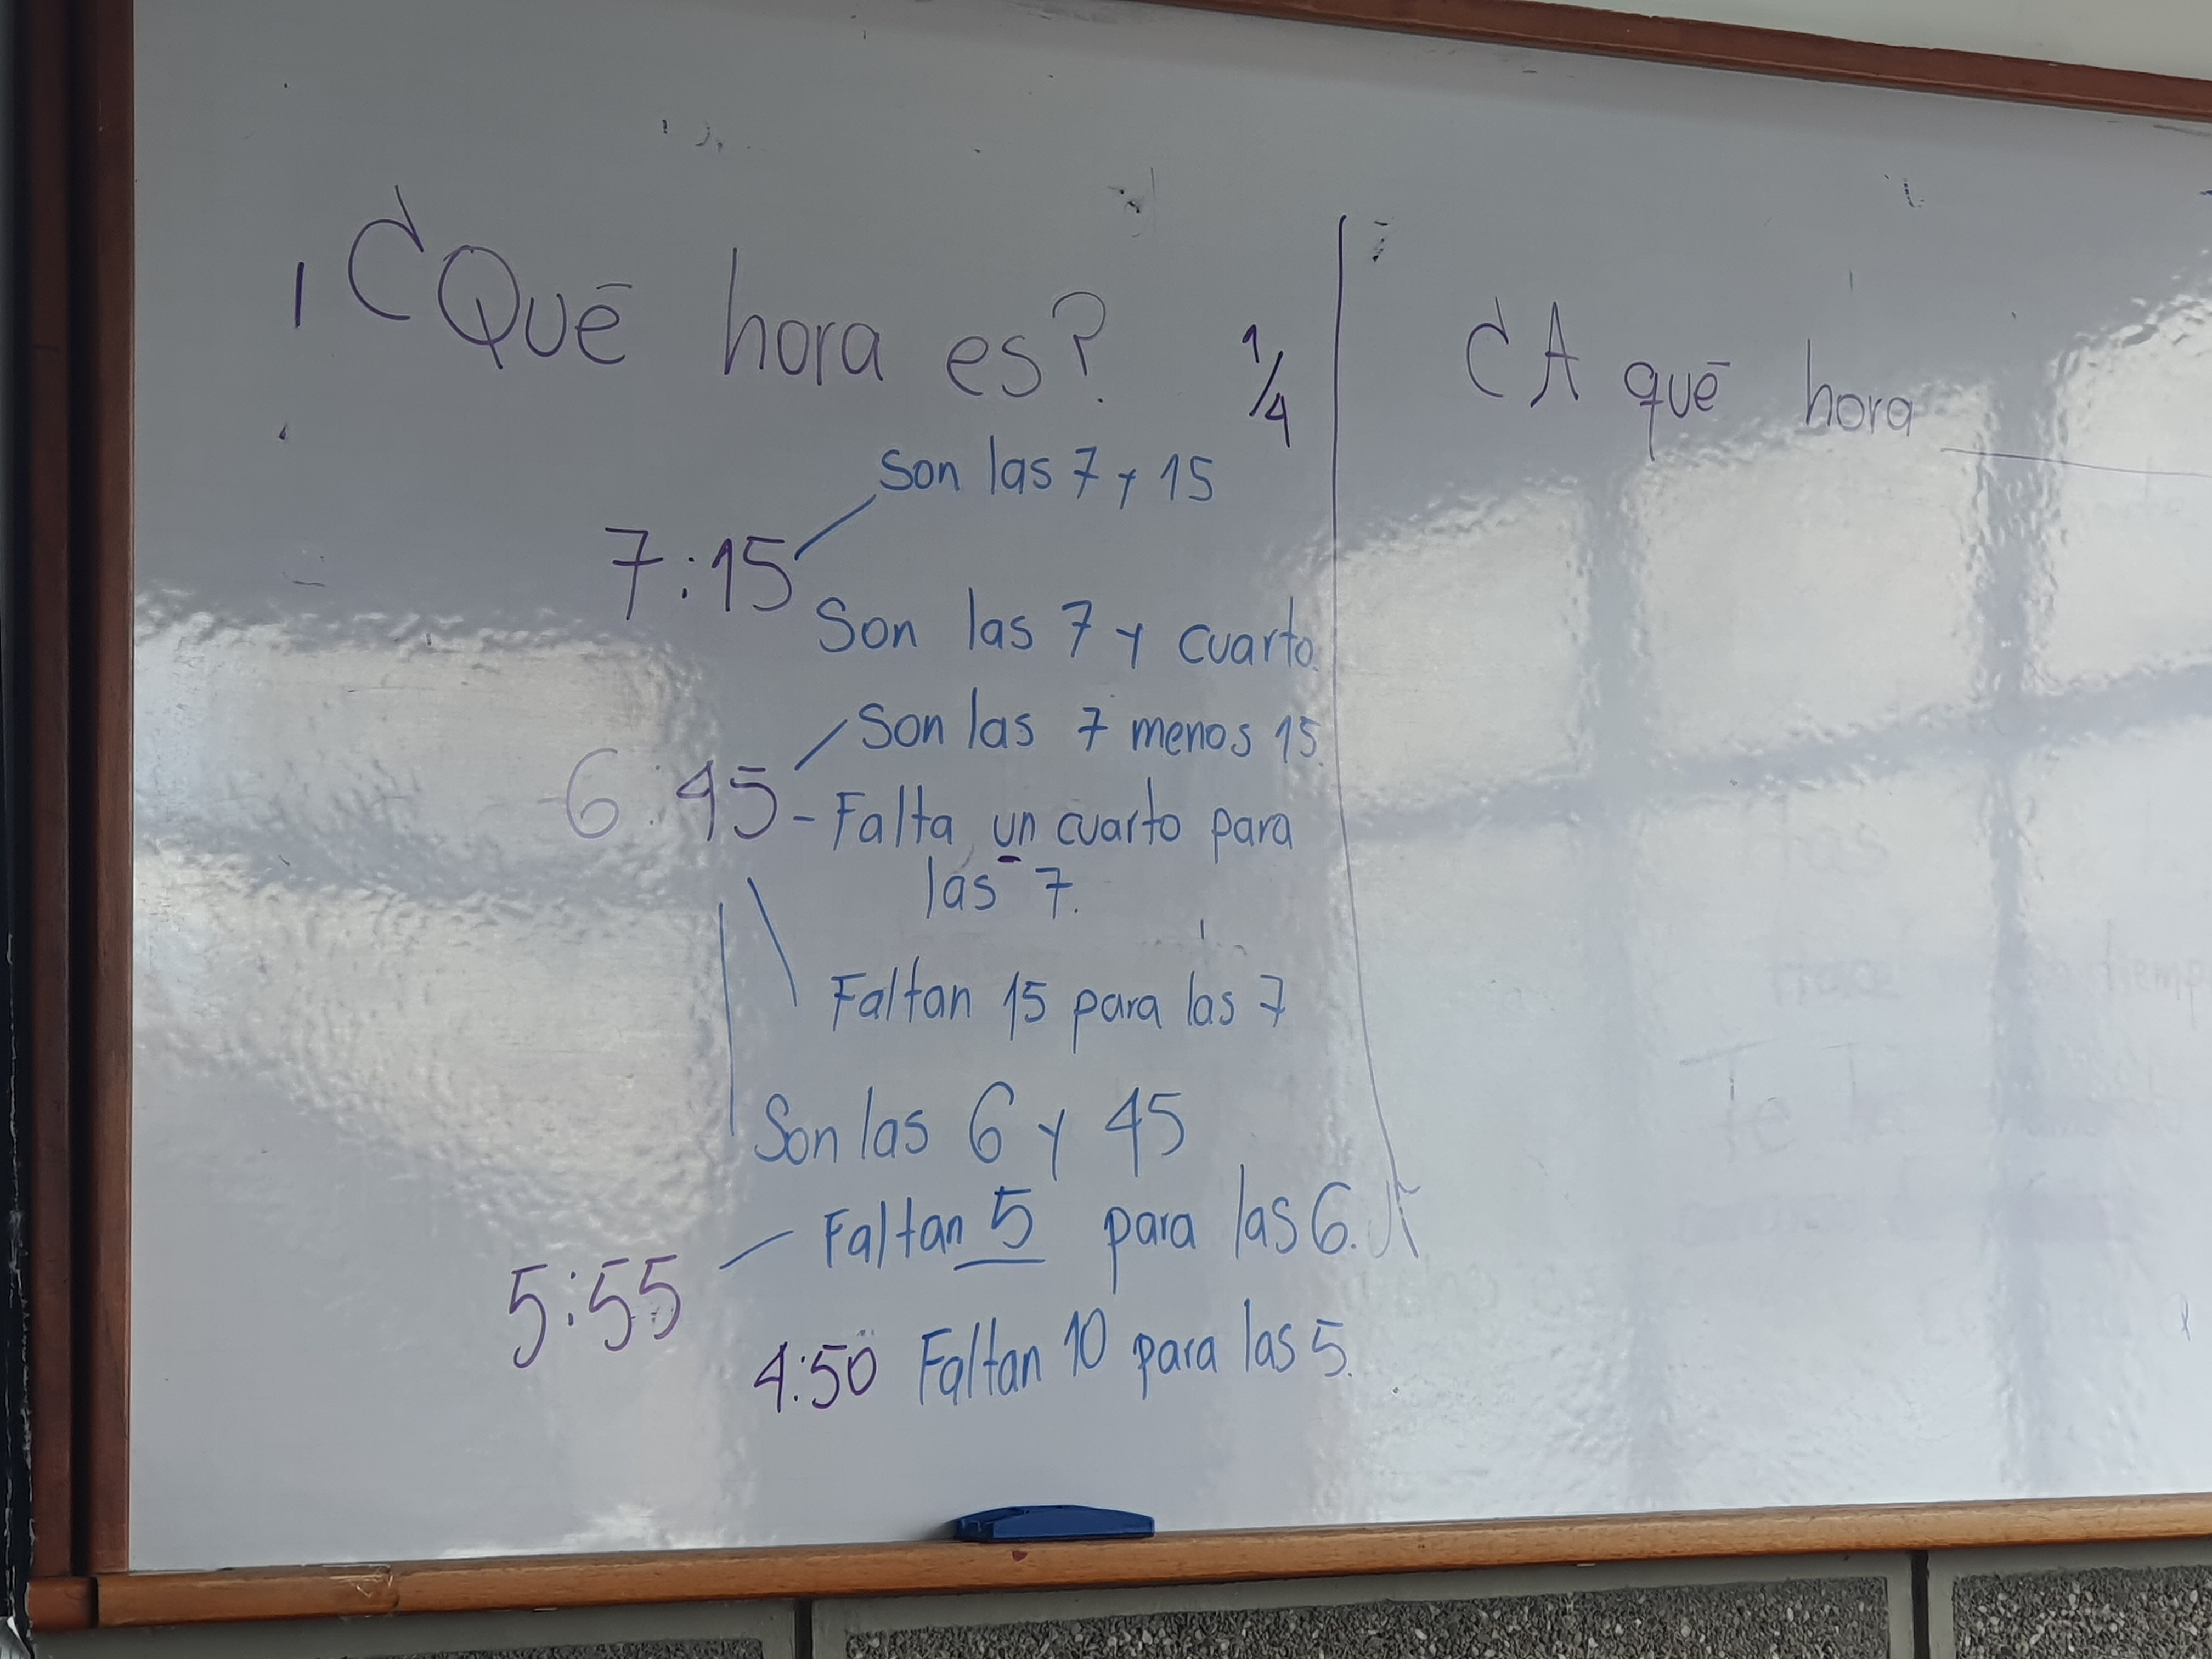 ¿Qué hora es?
1/4
Son las 7 y 15
7:15
Son las 7 y cuarto.
Son las 7 menos 15.
6:45 - Falta un cuarto para
las 7.
Faltan 15 para las 7
Son las 6 y 45
Faltan 5 para las 6.
5:55
4:50 Faltan 10 para las 5.
¿A qué hora